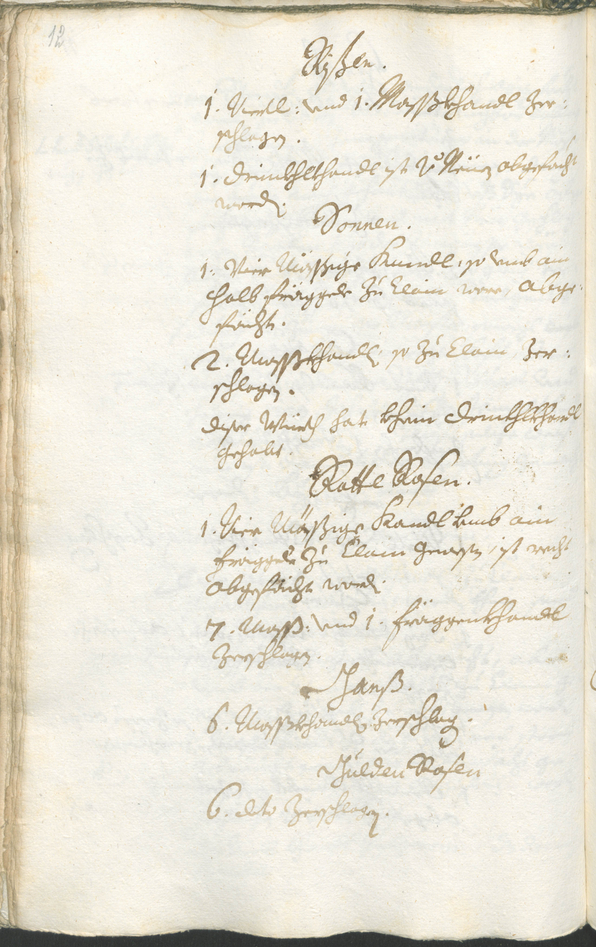 12
Rößlen.
1. Viertl: vnd 1. Maßkhandl zer:
schlagen.
1. drinkhkhandl ist v̈o Neüen abgefächt
worden.
Sonnen.
1. Vier Mäßige Kandl, so vmb ain
halb fräggele zu klain ware, abge:
fächt.
2. Maßkhandlen so zu klain zer:
schlagen.
diser Würth hat khain drinkhkhandl
gehabt.
Rotte Rosen.
1. Vier Mäßige Kandl vmb ain
fräggele zu klain gewesen ist recht
abgefächt worden.
7. Maß: vnd 1. fräggenkhandl
zerschlagen.
Ganß.
6. Maßkhandlen zerschlag.
Gulden Rosen
6. dito zerschlagen.